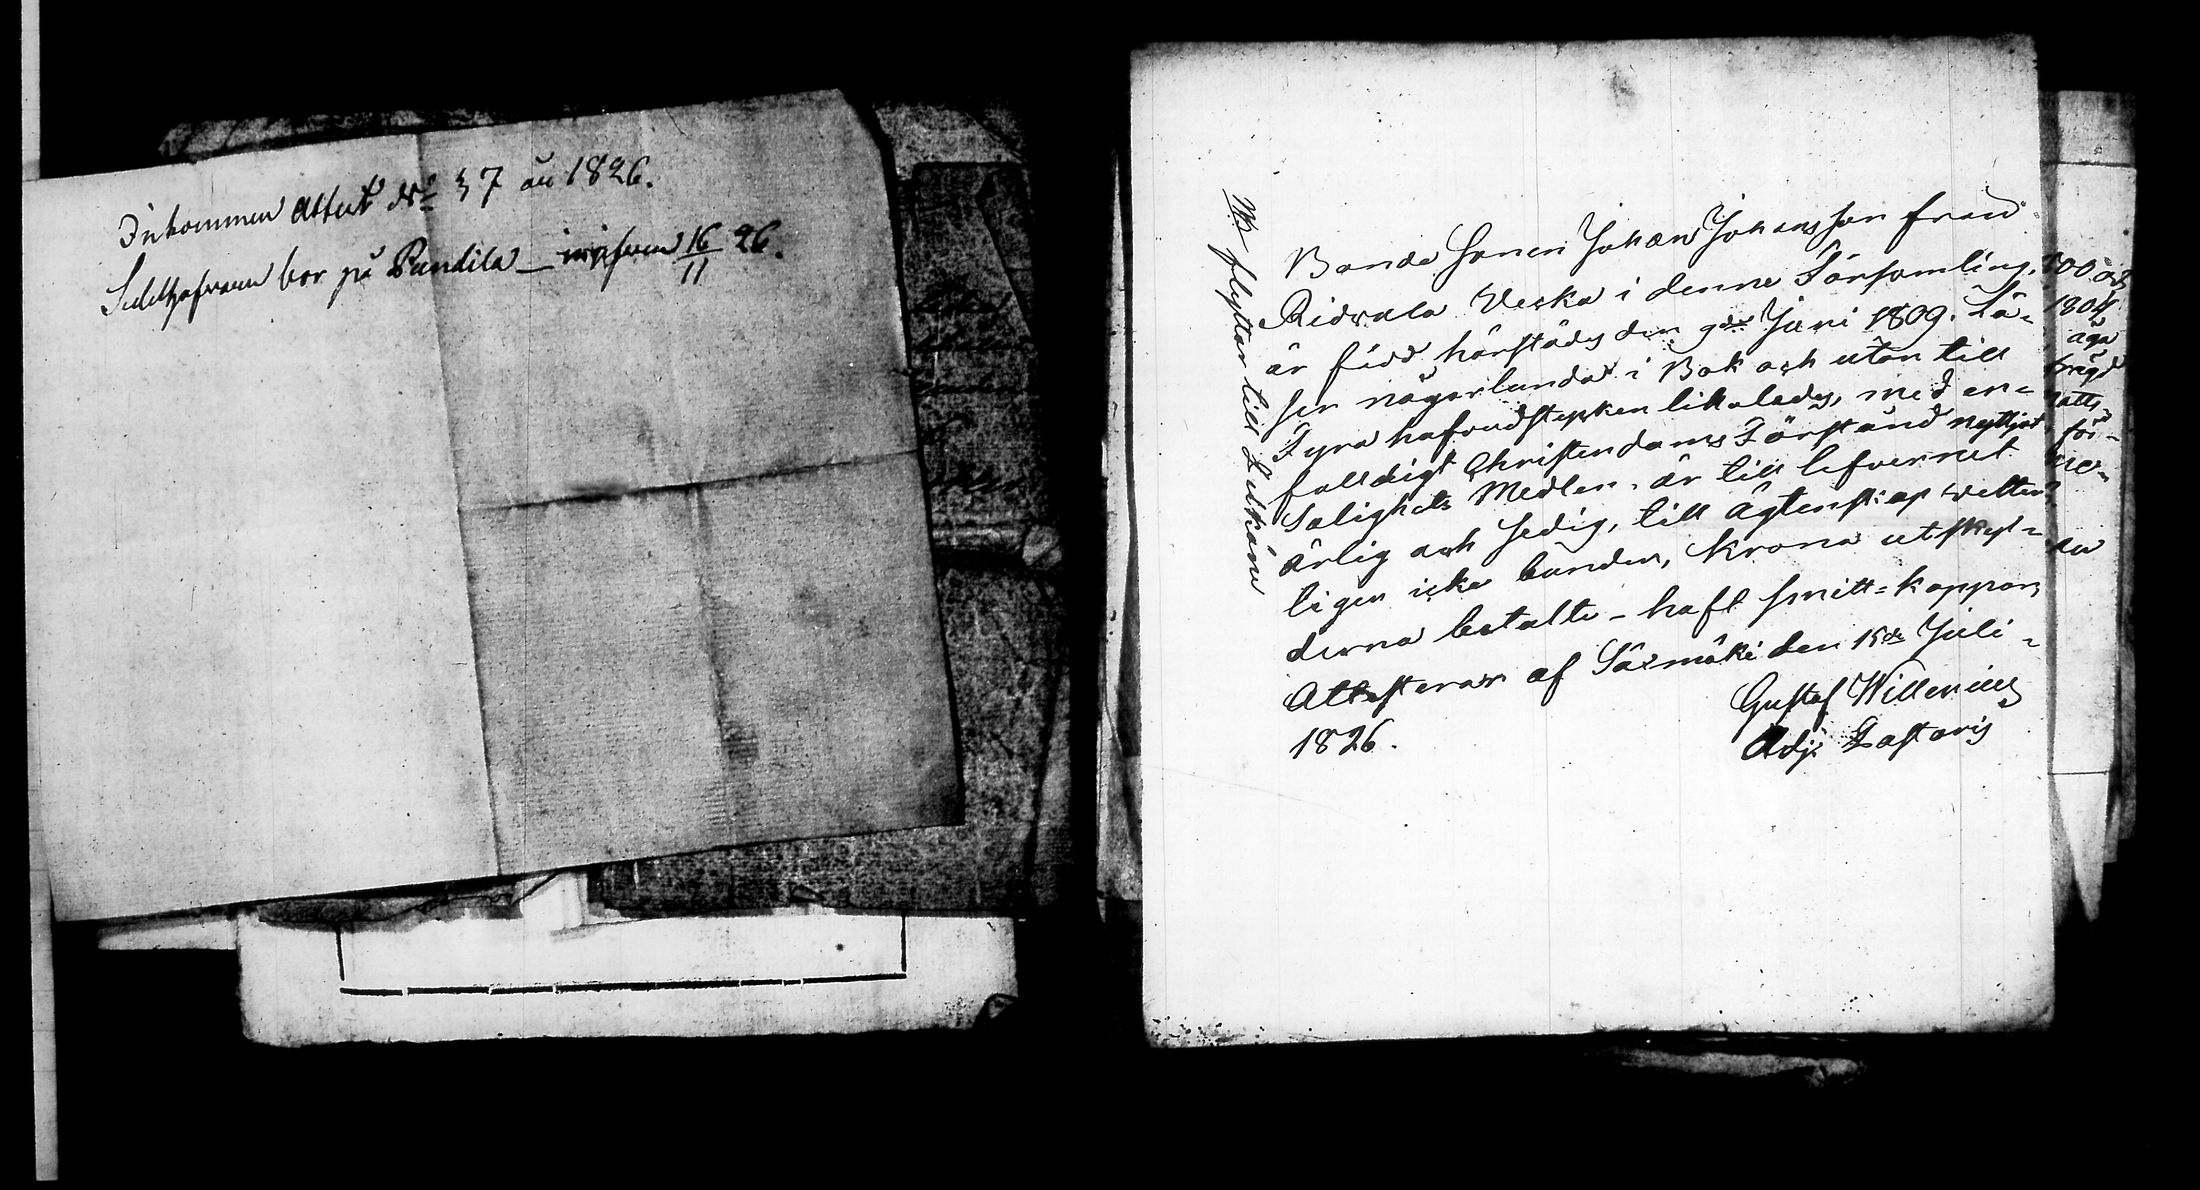 Inkommen Attest No 37 an 1826.
bor på Pundila — 16/11 26.
Bonde Sonen Johan Johansson från
Ridvala Veska i denne Församling,
är född härstädes den 9de Juni 1809. Lä-
ser någorlunda i Bok och utan till
Fyra hufvudstycken likaledes, med en-
falldigt Christendoms Förstånd nyttjat
Salighets Medlen, är till lefvernet
ärlig och sedig, till Ägtenskap vetter-
ligen icke bunden, Krono utskyl-
derna betalte - haft smitt-koppor,
Attesterar af Säxmäki den 15de Juli
1826.
Gustaf Willenius
Adj. Pastoris
NB flyttar till
1804
äga
för-